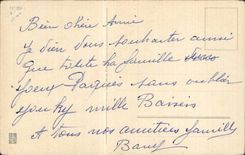 Bien chère Amie
Je vien vous souhaiter ainsi
que toute la famille
Joyeux Pâques sans oublier
mille Baisers
A vous nos amitiés famille